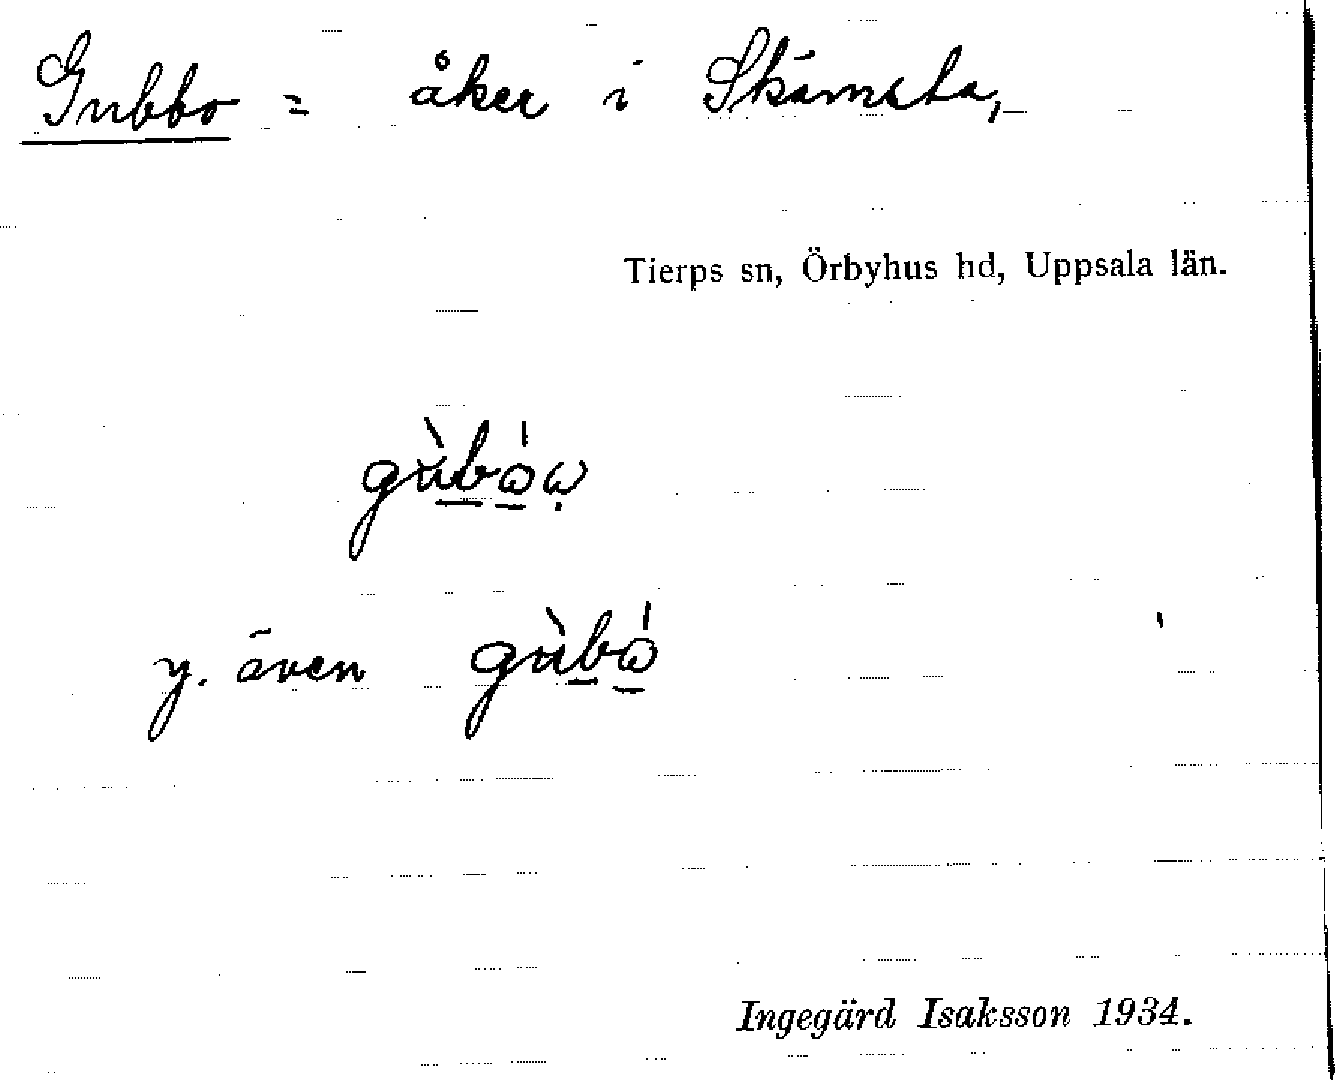 Gubbo = åker i Skämsta,
Tierps sn, Örbyhus hd, Uppsala län.
y. även
Ingegärd Isaksson 1934.